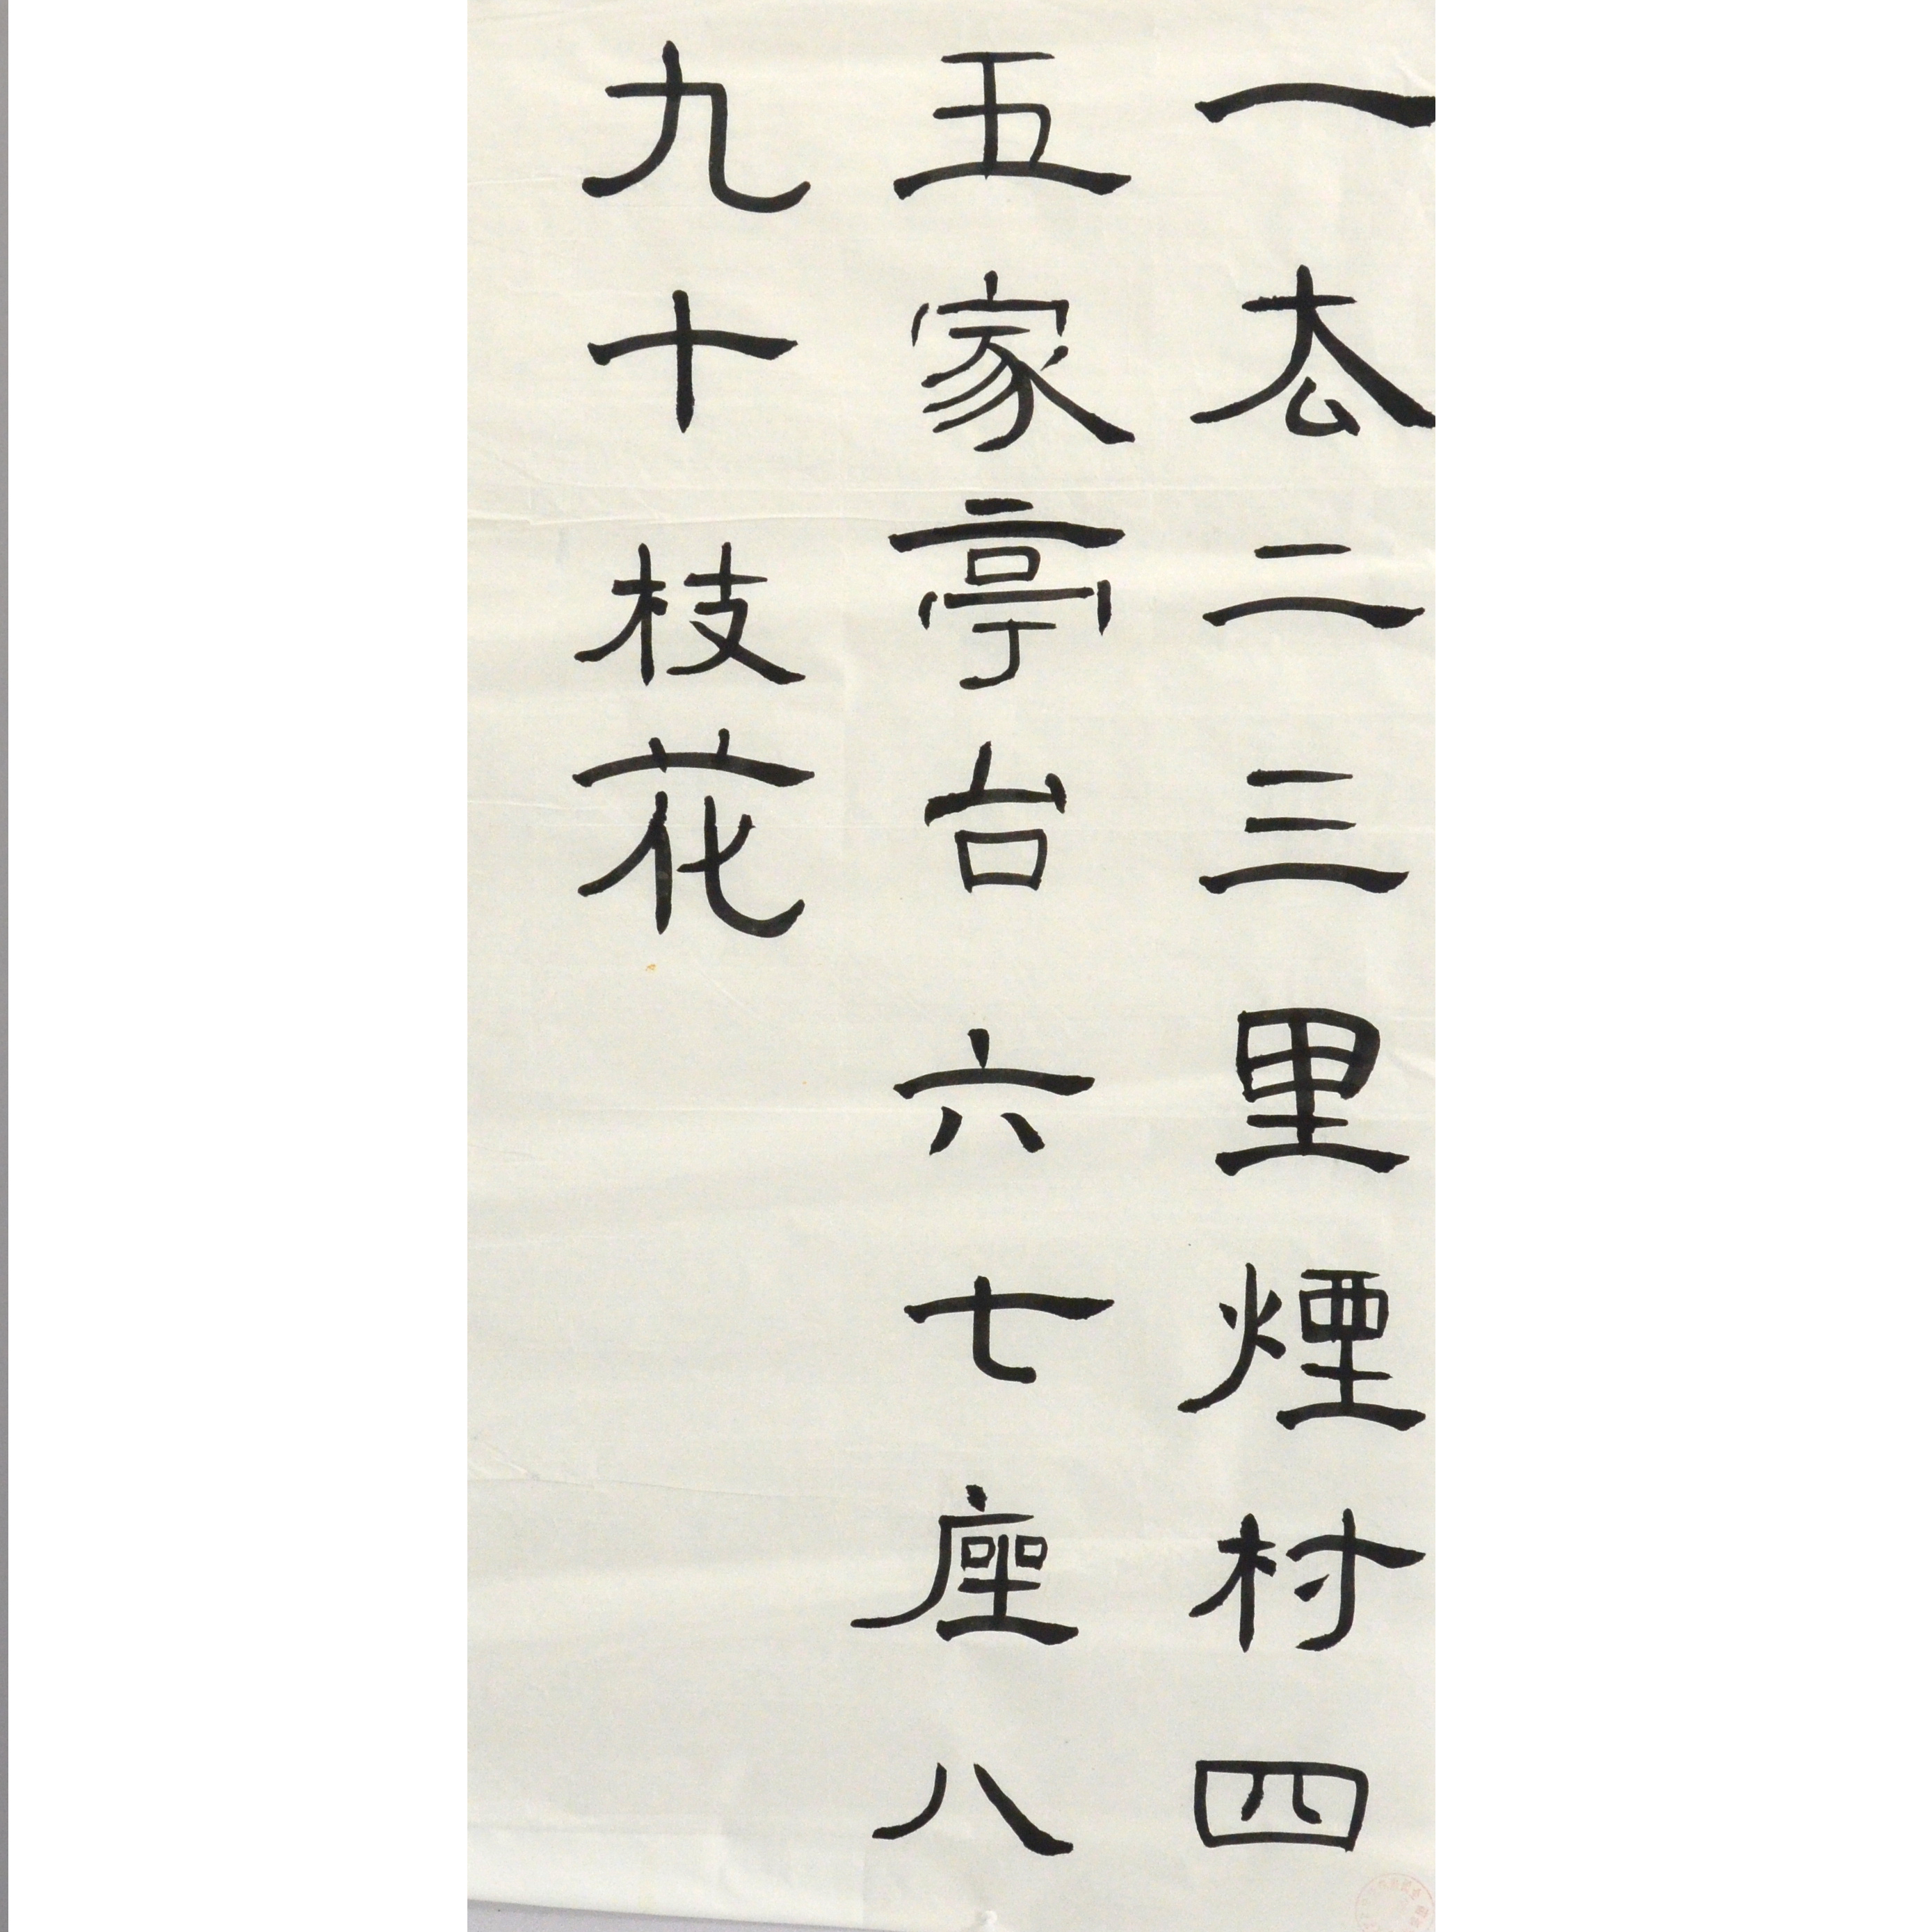 一厺二三里煙村四
五家亭台六七座八
九十枝花